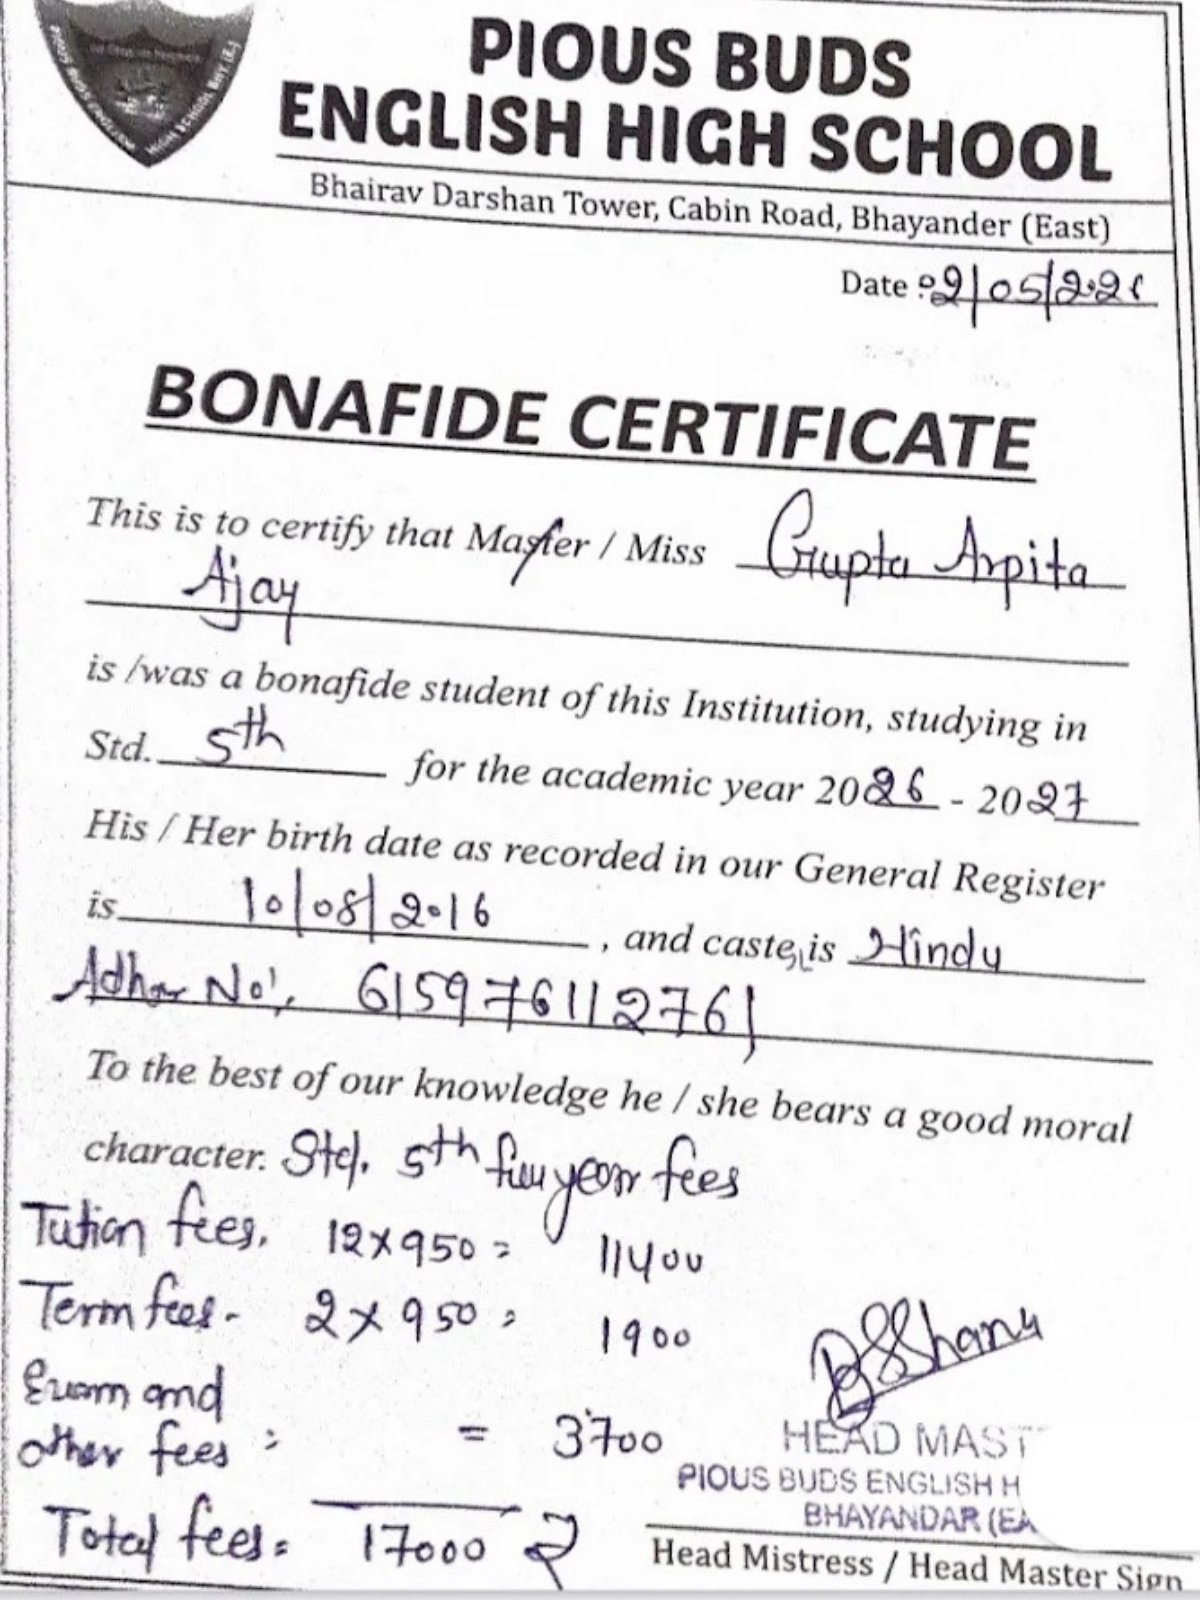 PIOUS BUDS
ENGLISH HIGH SCHOOL
Bhairav Darshan Tower, Cabin Road, Bhayander (East)
Date : 02/05/2026
BONAFIDE CERTIFICATE
This is to certify that Master / Miss Gupta Arpita
Ajay
is /was a bonafide student of this Institution, studying in
Std. 5th for the academic year 2026 - 2027
His / Her birth date as recorded in our General Register
is 10/08/2016, and caste is Hindu
Adhar No:. 615976112761
To the best of our knowledge he / she bears a good moral
character. Std. 5th full year fees
Tution fees. 12x950 = 11400
Term fees - 2 x 950 = 1900
Exam and
other fees : = 3700
Total fees = 17000 ₹
HEAD MAST
PIOUS BUDS ENGLISH H
BHAYANDAR (EA
Head Mistress / Head Master Sign